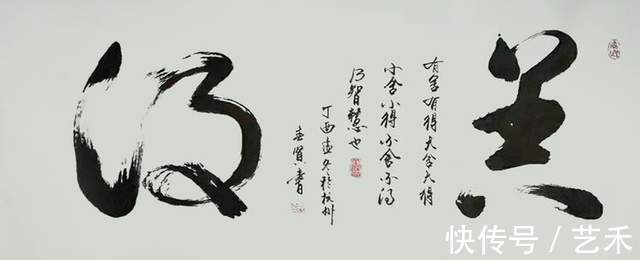 舍
有舍有得大舍大得
小舍小得不舍不得
乃智慧也
丁酉冬於杭州
贤書
得
快传号 / 艺禾